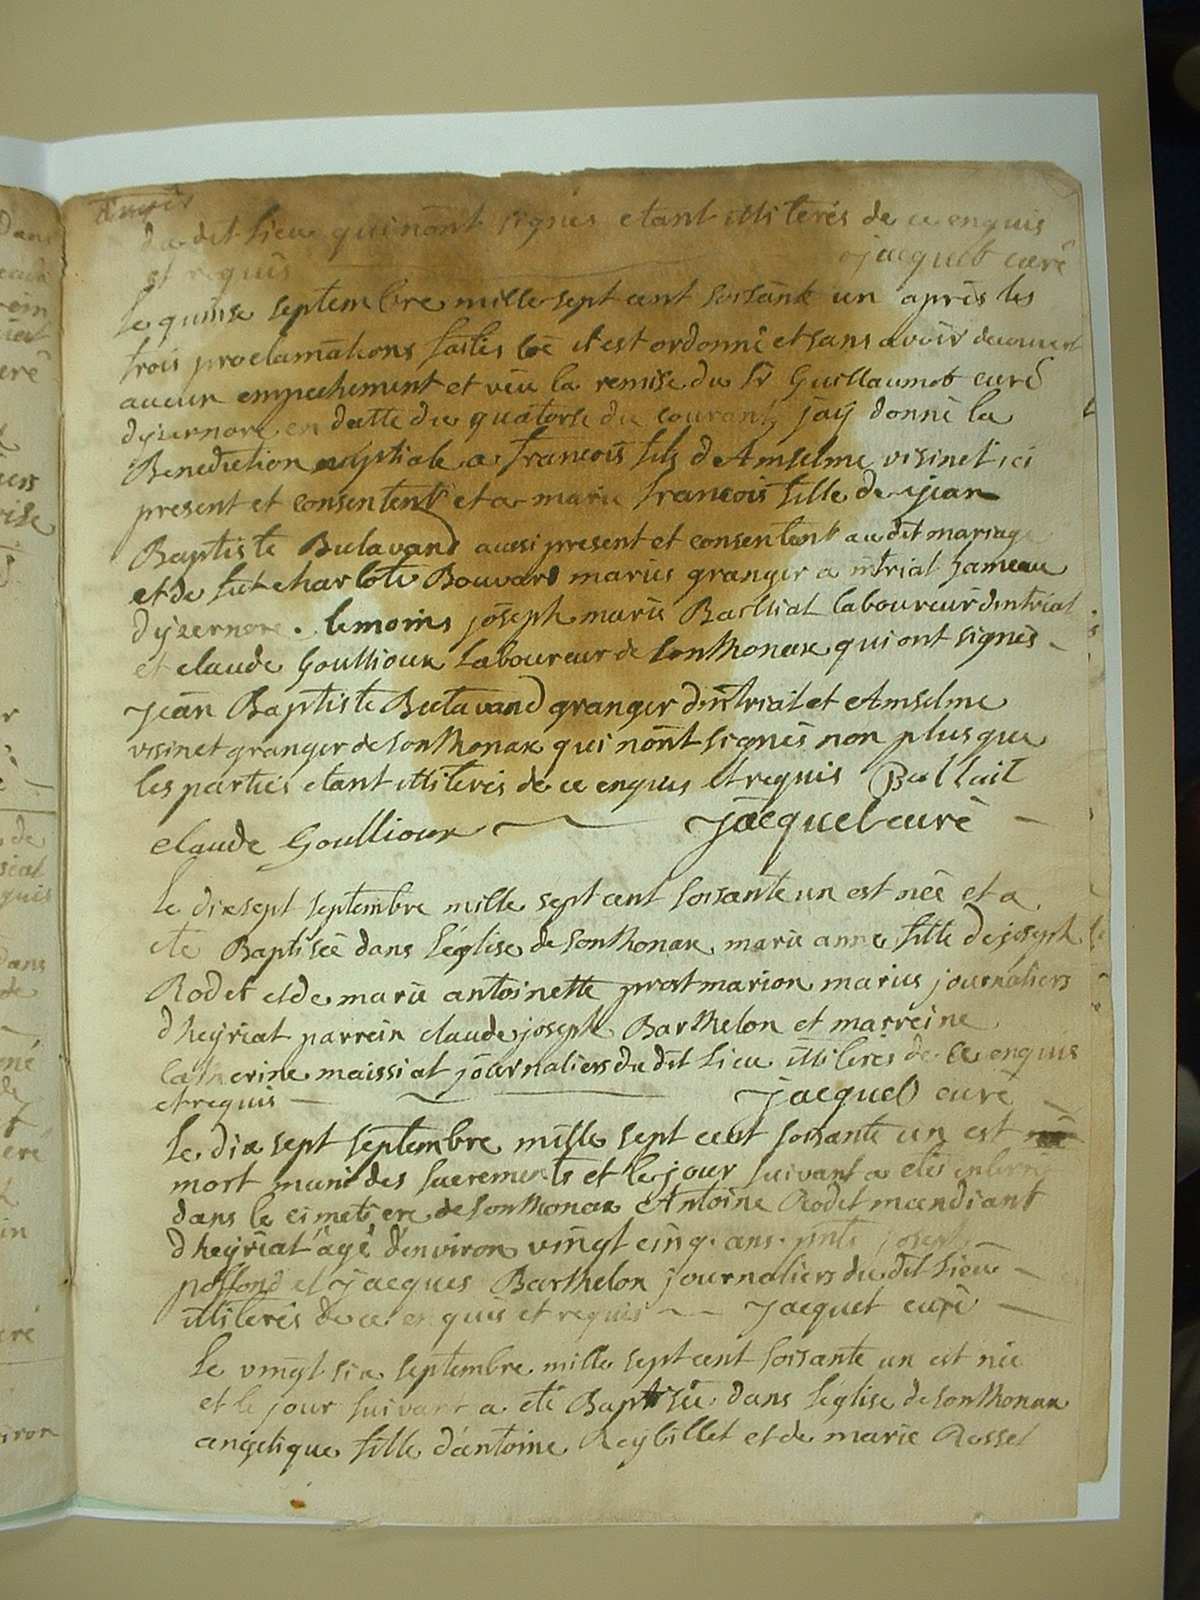 du dit lieu qui nònt signes etant illiterés de ce enquis
et requis jacquet curé
le quinse septembre mille sept cent soisante un apris les
trois proclamations faites cōe il est ordonné et sans avoir decouvert
aucun empechement et véu la remise du Sr Guillaumot curé
dÿzernore en datte du quatorse du courant jaÿ donné la
Benediction nuptiale a francois fils dAmselme visinet ici
present et consentent et a marie francois fille de jean
Baptiste Butavand aussi present et consentent au dit mariage
et de fut charlote Bouvard mariés granger a intriat hameau
dÿzernore. temoins joseph marie Bailliat laboureur dintriat
et claude Goullioux laboureur de sonthonax qui ont signés
jean Baptiste Butavand granger dintriat et Amselme
visinet granger de sonthonax qui nònt signés non plus que
les parties etant illiterés de ce enquis et requis Balliait
claude Goullioux jacquet curé
le dixsept septembre mille sept cent soisante un est née et a
eté Baptisée dans léglise de sonthonax marie anne fille de joseph
Rodet et de marie antoinette prost marion mariés journaliers
dheÿriat parrein claude joseph Barthelon et marreine
catherine maissiat journaliers du dit lieu illiterés de ce enquis
et requis jacquet curé
le dix sept septembre mille sept cent soisante un est
mort muni des sacrements et le jour suivant a eté enterré
dans le cimetiere de sonthonax Antoine Rodet mandiant
dheÿriat âgé denviron vingt cinq ans. pnts joseph
poffond et jacques Barthelon journaliers du dit lieu
illiterés de ce enquis et requis jacquet curé
le vingt six septembre mille sept cent soisante un est née
et le jour suivant a eté Baptisée dans léglise de sonthonax
angelique fille dàntoine Reybillet et de marie Rosset